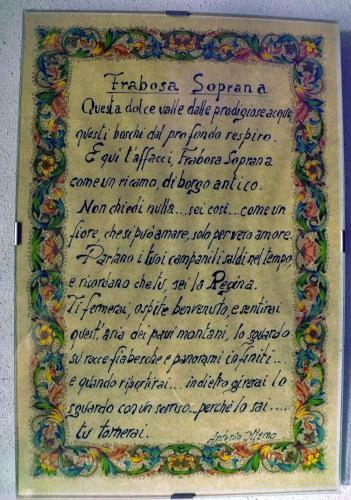 Frabosa Soprana
Questa dolce valle dalle prodigiose acque,
questi boschi dal profondo respiro.
E qui t'affacci, Frabosa Soprana
come un ricamo, di borgo antico.
Non chiedi nulla... sei così... come un
fiore, che si può amare, solo per vero amore.
Parlano i tuoi campanili saldi nel tempo
e ricordano che tu, sei la Regina.
Ti fermerai, ospite benvenuto, e sentirai
quest'aria dei pavri montani, lo sguardo
su rocce fiabesche e panorami infiniti...
e quando ripartirai... indietro girerai lo
sguardo con un sorriso... perché lo sai.....
tu tornerai.
Antonio